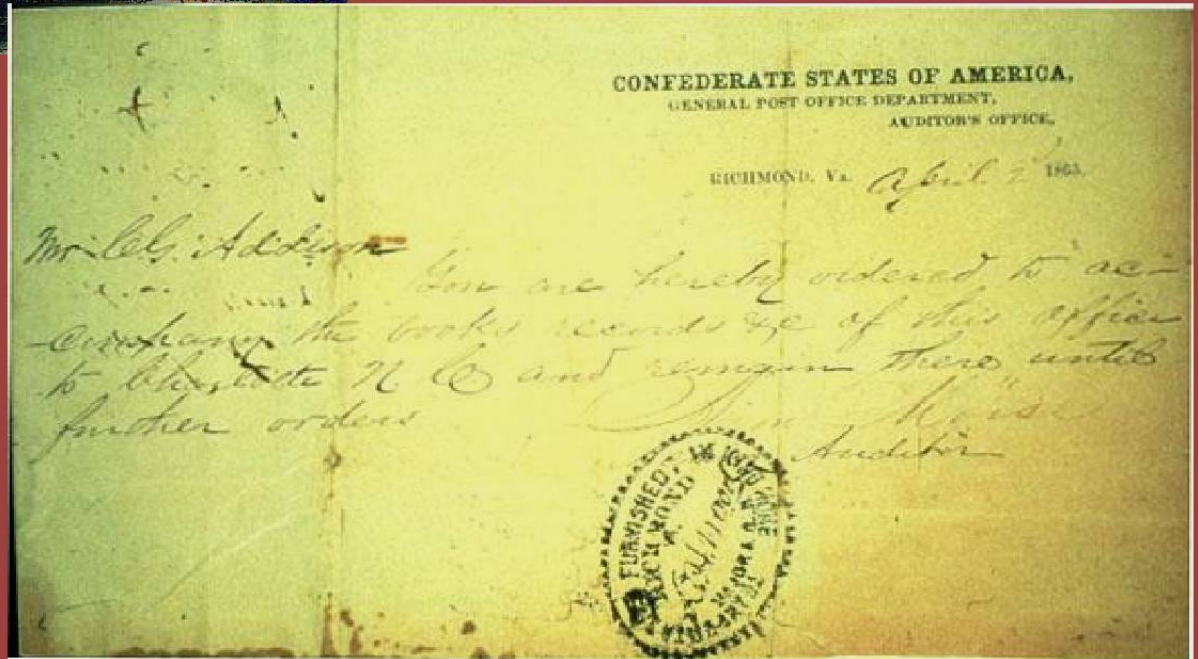 CONFEDERATE STATES OF AMERICA,
GENERAL POST OFFICE DEPARTMENT,
AUDITOR'S OFFICE,
RICHMOND, Va. April 2 1865.
Mr. C.G. Addison
You are hereby ordered to ac-
-company the books records &c of this office
to Charlotte N C and remain there until
further orders
Auditor
FURNISHED
RICHMOND
TRANSPORTATION
MAJOR & Q.M.